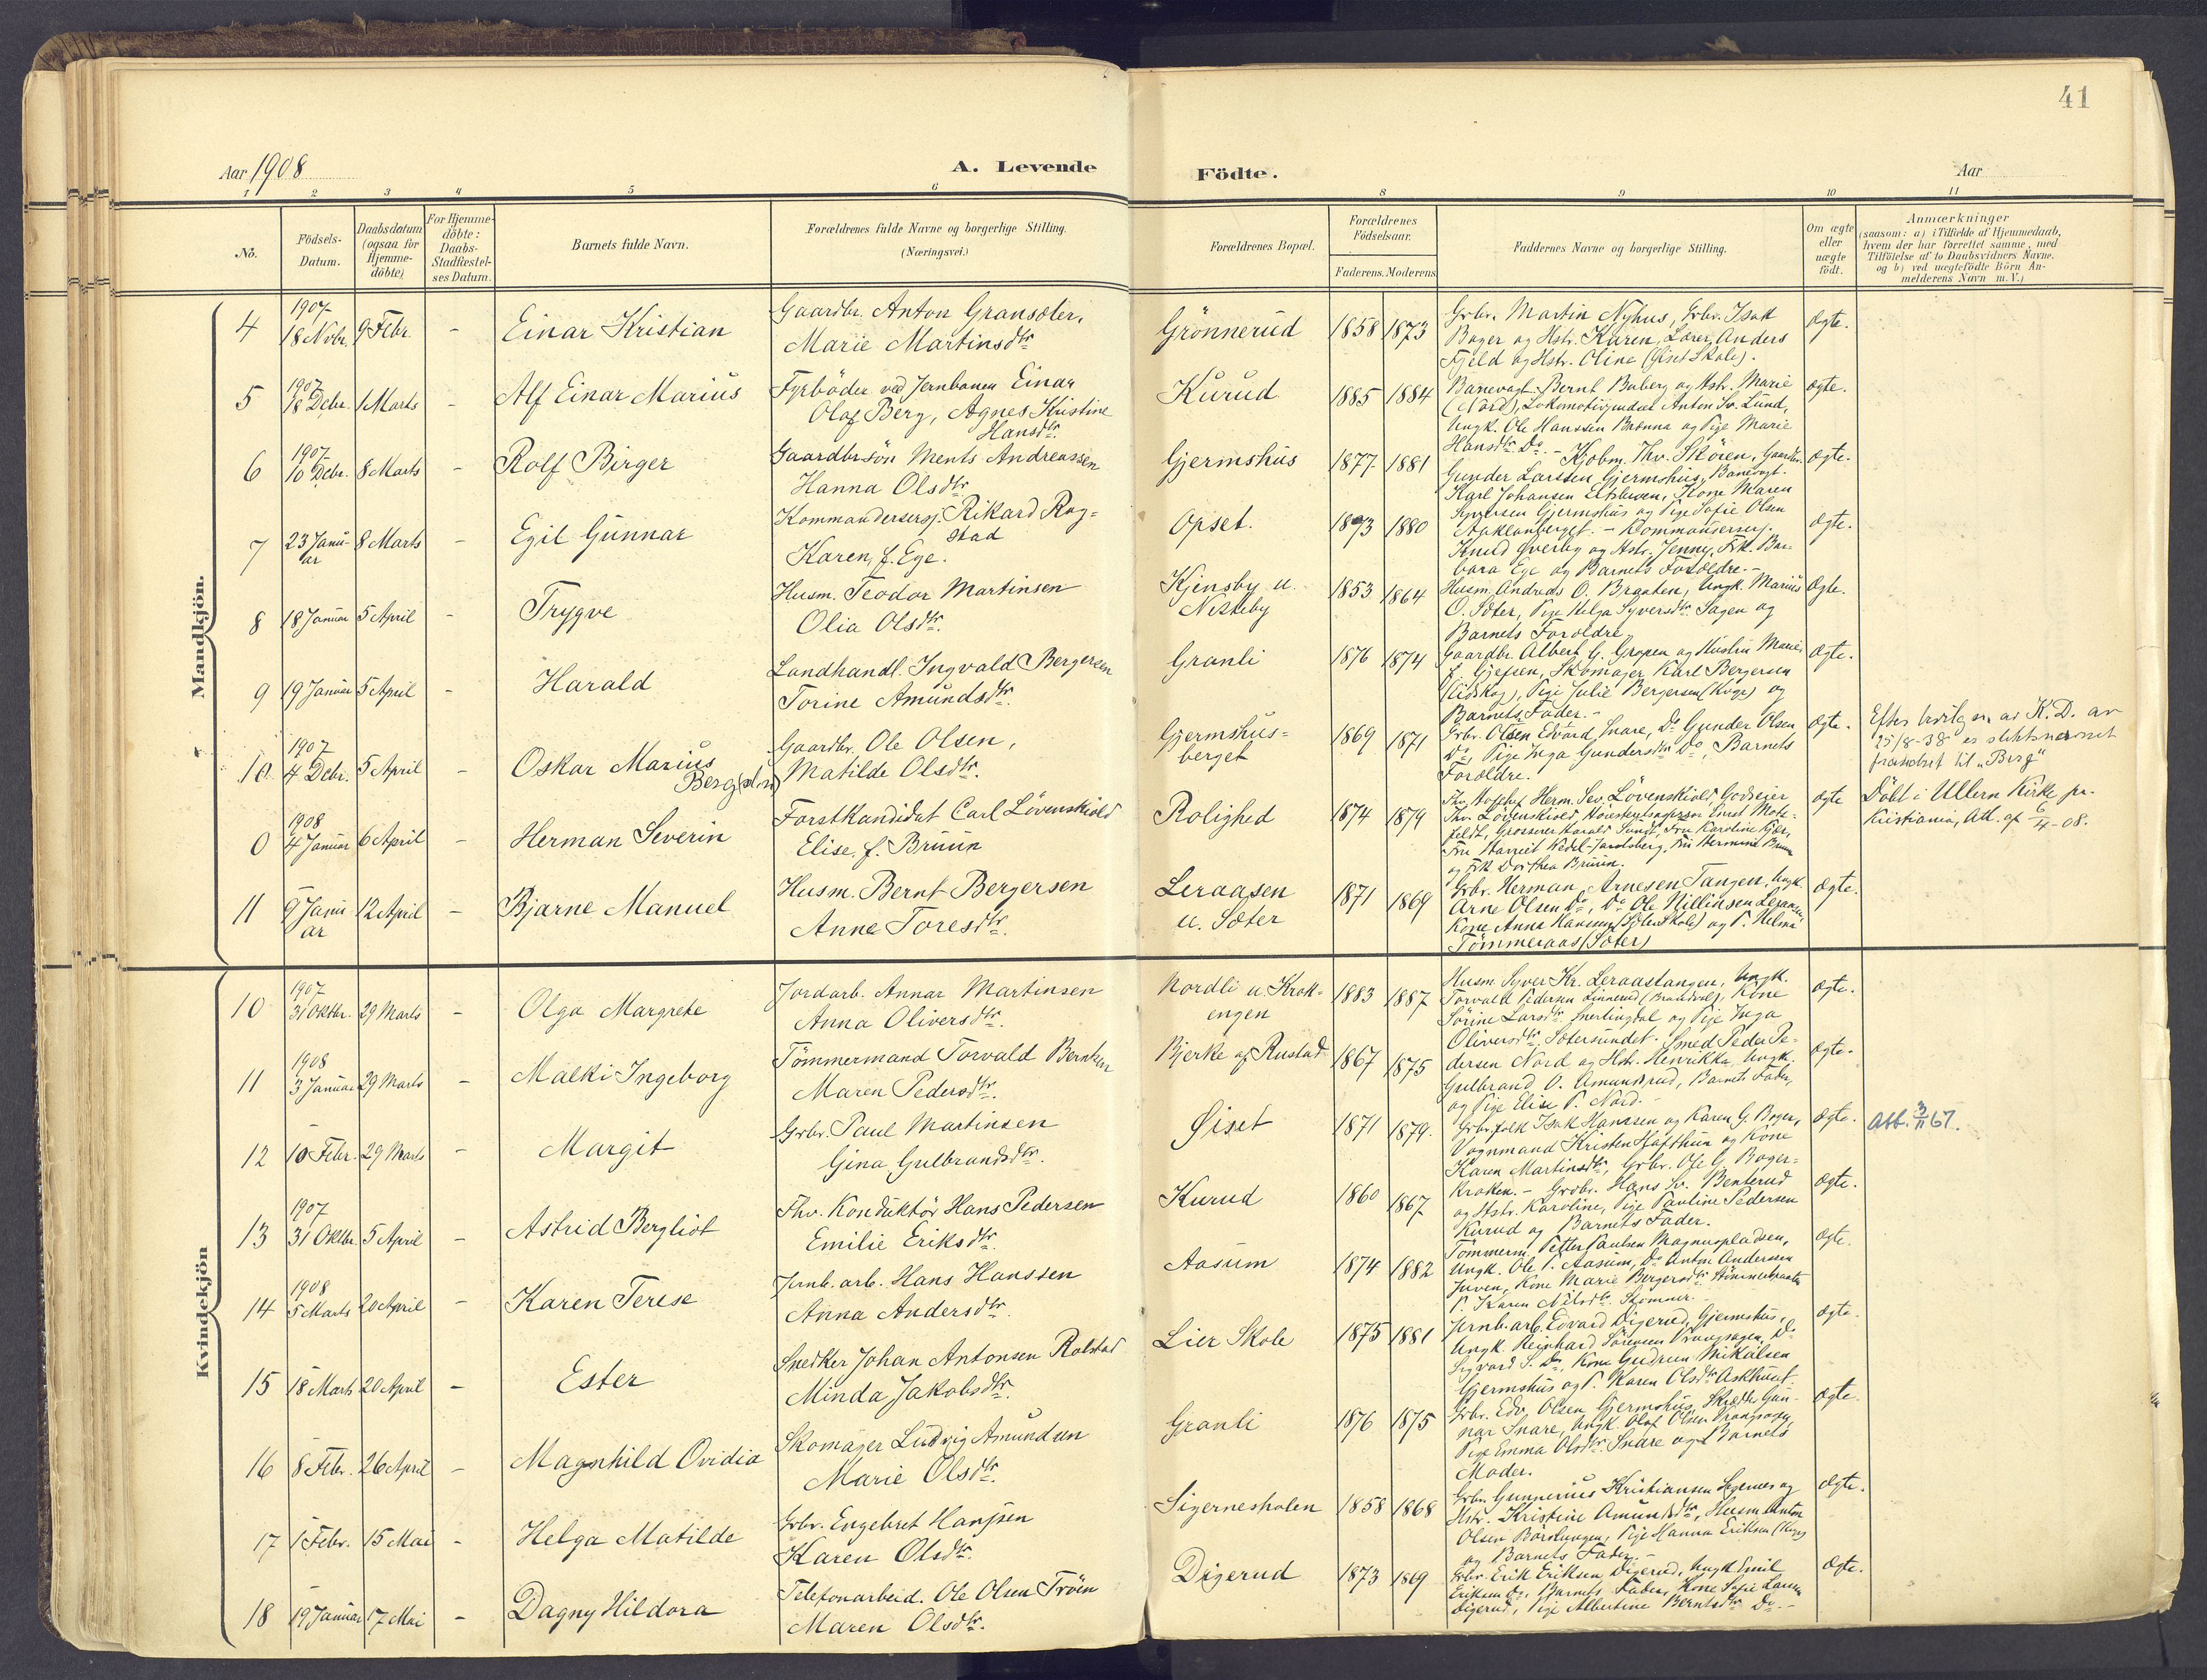 41
Aar 1908
A. Levende Födte.
Aar
1 2 3 4 5 6 8 9 10 11
No.
Födsels-Datum.
Daabsdatum (ogsaa for Hjemme-döbte)
For Hjemme-döbte: Daabs-Stadfæstel-ses Datum.
Barnets fulde Navn.
Forældrenes fulde Navne og borgerlige Stilling. (Næringsvei.)
Forældrenes Bopæl.
Forældrenes Födselsaar.
Faderens. Moderens
Faddernes Navne og borgerlige Stilling.
Om ægte eller uægte födt.
Anmærkninger
(saasom: a) i Tilfælde af Hjemmedaab,
hvem der har forrettet samme, med
Tilföielse af to Daabsvidners Navne.
og b) ved uegtefödte Börn An-
melderens Navn m. V.)
Mandkjön.
4 1907 18 Novbr. 9 Febr. - Einar Kristian
Gaardbr. Anton Gransæter,
Marie Martinsdtr
Grönnerud 1858 1873
Grbr. Martin Nyhus, Grbr. Isak
Bager og Hstr. Karen, Lærer Anders
Fjeld og Hstr. Oline (Øiset Skole).
Ægte.
5 1907 18 Debr. 1 Marts - Alf Einar Marius
Fyrböder ved Jernbanen Einar
Olaf Berg, Agnes Kristine
Hansdtr.
Kurud 1885 1884
Banevogt Bernt Buberg og Hstr. Marie
(Nord), Lokomotivpudser Anton Sv. Lund,
Ungk. Ole Hanssen Brænna og Pige Marie
Hansdtr. Do. -
ægte.
6 1907 10 Debr. 8 Marts - Rolf Birger
Gaardbrsön Ments Andreassen
Hanna Olsdtr
Gjermshus 1877 1881
Kjöbm. Thv. Skören, Gaardbr.
Gunder Larssen Gjermshus, Banevogt
Karl Johansen Eltsleven, Kone Maren
Syversen Gjermshus og Pige Sofie Olsen
Aaklanberget. -
ægte.
7 23 Janu-ar 8 Marts - Egil Gunnar
Kommandersersj. Rikard Rog-
stad
Karen, f. Ege.
Opset. 1873 1880
Kommandersersj.
Knud Øverby og Hstr. Jenny, Frk. Bar-
bara Ege og Barnets Forældre. -
ægte.
8 18 Januar 5 April - Trygve
Husm. Teodor Martinsen
Olia Olsdtr.
Kjensby u. Nesteby 1853 1864
Husm. Andreas O. Braaten, Ungk. Marius
O. Sæter, Pige Helga Syversdtr. Sagen og
Barnets Forældre
Ægte.
9 19 Januar 5 April - Harald
Landhandl. Ingvald Bergersen
Torine Amundsdtr.
Granli 1876 1874
Gaardbr. Albert G. Gropen og Hustru Marie
f. Gjefsen, Skomager Karl Bergersen
(Eidskog), Pige Julie Bergersen (Kvge) og
Barnets Fader. -
Ægte.
10 1907 4 Debr. 5 April - Oskar Marius
Berg (sl.n)
Gaardbr. Ole Olsen,
Matilde Olsdtr.
Gjermshus-berget 1869 1871
Grbr. Olsen Edvard Snare, Do Gunder Olsen
Do, Pige Inga Gundersdtr Do, Barnets
Forældre.
Ægte.
Efter bevilgn. av K. D. av
25/8-38 er slektsnavnet
forandret til „Berg"
0 1908 4 Januar 6 April - Herman Severin
Forstkandidat Carl Lövenskiold
Elise, f. Bruun
Rolighed 1874 1879
Thv. Hofchef Herm. Sev. Lövenskiold, Godseier
Thv. Lövenskiold, Höiesteretsassessor Ernst Motz-
feldt, Grosserer Harald Sundt, Fru Karoline Kjær,
Fru Harriet Wedel-Jarlsberg, Fru Hermine Bruun
og Frk. Dorthea Bruun.
ægte
Döbt i Ullern Kirke pr.
Kristiania, Att. af 6/4-08.
11 9 Janu ar 12 April - Bjarne Manuel
Husm. Bernt Bergersen
Anne Toresdtr.
Leraasen u. Sæter 1871 1869
Grbr. Herman Arnesen Tangen, Ungk.
Arne Olsen Do, Do Ole Nillinsen Leraasen,
Kone Anna Hansen (Sæter Skole) og P. Helma
Tömmeraas (Sæter)
ægte.
Kvindekjön
10 1907 31 Oktbr. 29 Marts - Olga Margrete
Jordarb. Annar Martinsen
Anna Oliversdtr.
Nordli u. Krok-engen 1883 1887
Husm. Syver Kr. Leraastangen, Ungk.
Torvald Pedersen Linnerud (Brandval), Kone
Sörine Larsdtr. Snertingdal og Pige Inga
Oliversdtr. Sætersundet. -
ægte.
11 1908 3 Januar 29 Marts - Malki Ingeborg
Tömmermand Torvald Berntsen
Maren Pedersdtr.
Bjerke af Rustad 1867 1875
Smed Peder Pe-
dersen Nord og Hstr. Henrikka, Ungk.
Gulbrand O. Amundsrud, Barnets Fader,
og Pige Elise P. Nord. -
ægte.
12 10 Febr. 29 Marts - Margit
Grbr. Paul Martinsen
Gina Gulbrandsdtr.
Øiset 1871 1879.
Grbrfolk Isak Hanssen og Karen G. Boger,
Vognmand Kristen Hafthun og Kone
Karen Martinsdtr, Grbr. Ole G. Boger-
kroken. -
ægte.
Att. 3/11 67.
13 1907 31 Oktbr. 5 April - Astrid Bergliot
Thv. Konduktör Hans Pedersen
Emilie Eriksdtr.
Kurud 1860 1867
Grdbr. Hans Sv. Benterud
og Hstr. Karoline, Pige Pauline Pedersen
Kurud og Barnets Fader.
ægte.
14 1908 5 Marts 20 April - Karen Terese
Jernb. arb. Hans Hanssen
Anna Andersdtr.
Aasum 1874 1882
Tömmerm. Petter Paulsen Magnuspladsen,
Ungk. Ole P. Aasum, Do Anton Andersen
Juven, Kone Marie Bergersdtr.
P. Karen Nilsdtr. Skomner. -
ægte.
15 18 Marts 20 April - Ester
Snedker Johan Antonsen Rolstad
Minda Jakobsdtr.
Lier Skole 1875 1881
Jernb. arb. Edvard Digerud, Gjermshus,
Ungk. Reinhard Sörensen Vrangsagen, Do
Sigvard S. Do, Kone Gudrun Mikalsen
Gjermshus og P. Karen Olsdtr Askhaut.
ægte.
16 8 Febr. 26 April - Magnhild Ovidia
Skomager Ludvig Amundsen
Marie Olsdtr.
Granli 1876 1875
Grbr. Edv. Olsen Gjermshus, Skrædder Gun-
nar Snare, Ungk. Olaf Olsen Vrangsagen,
Pige Emma Olsdtr. Snare og Barnets
Moder.
ægte.
17 1 Febr. 15 Mai - Helga Matilde
Grbr. Engebret Hansen
Karen Olsdtr.
Sigernesholen 1858 1868
Grbr. Gunnerius Kristiansen Sigernes og
Hstr. Kristine Amundsdtr, Husm. Anton
Olsen, Pige Hanna Eriksen
og Barnets Fader. -
ægte.
18 19 Januar 17 Mai - Dagny Hildora
Telefonarbeid. Ole Olsen Tröen
Maren Olsdtr.
Digerud 1873 1869
Grbr. Erik Eriksen Digerud, Ungk. Emil
Eriksen Do, Barnets Fader, Kone Sofie Larsen
Digerud, Pige Albertine Berntsdtr Do. -
ægte.